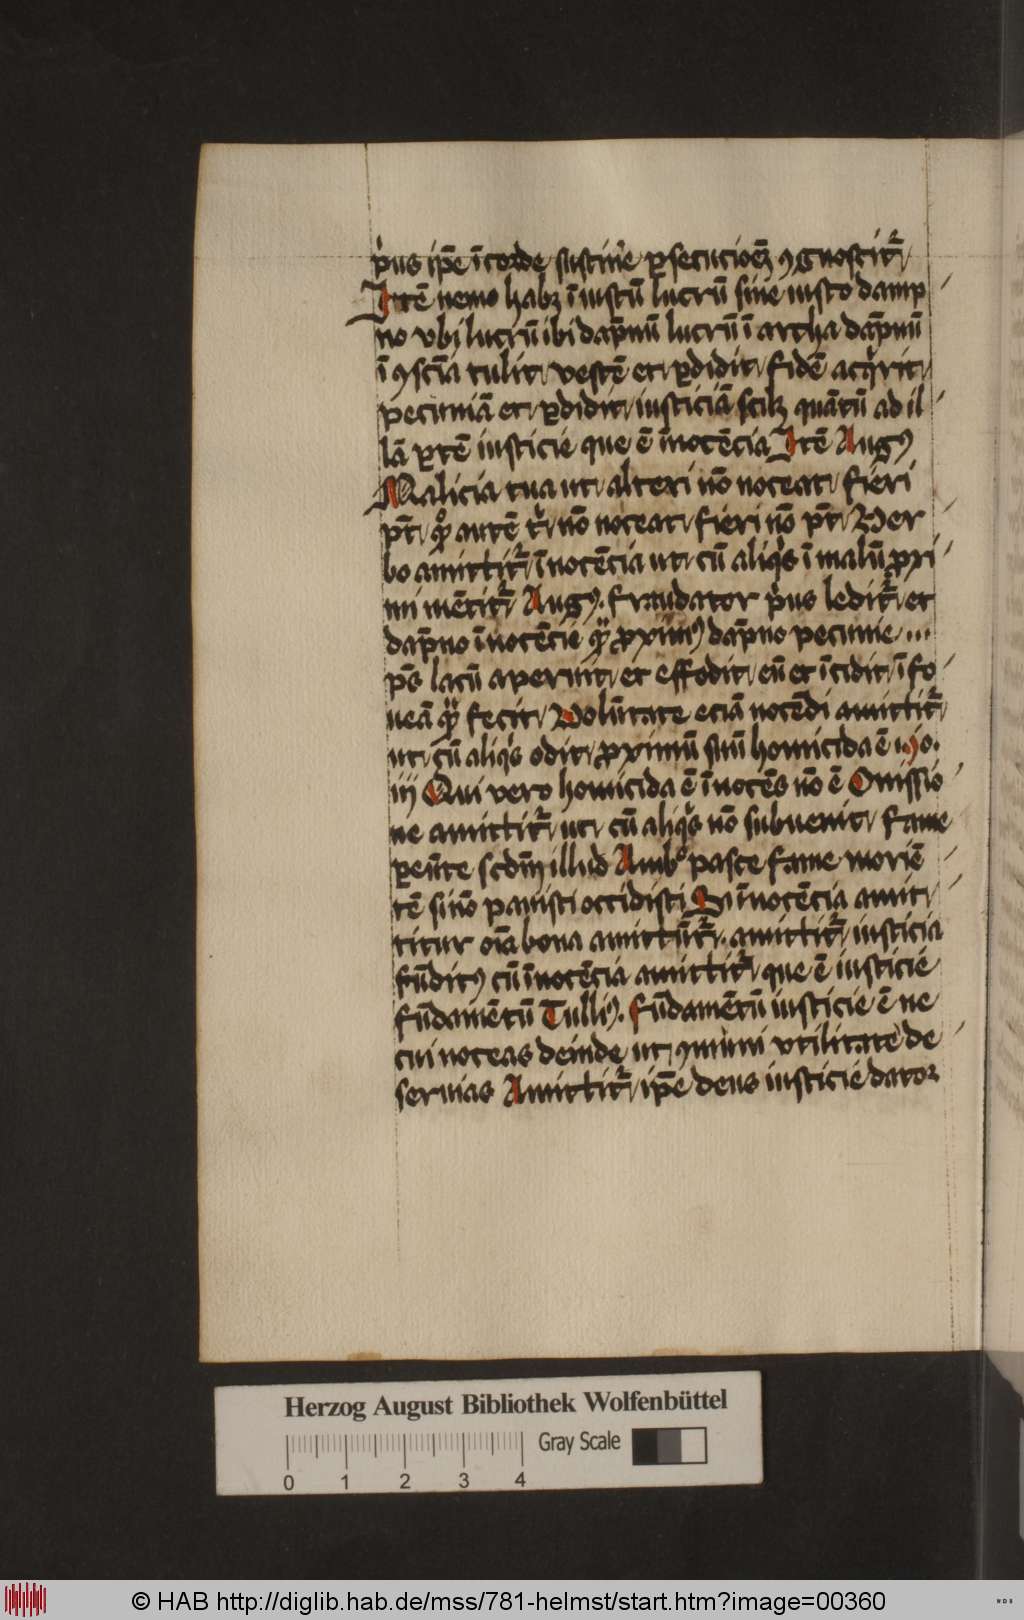 p̓us ip̄e ī corde sustin̓e ꝑsecucioēȝ ꝯgnoscit᷑
Itē nemo habȝ īiustū lucrū sine iusto damp
no vbi lucrū ibi dāpnū lucrū ī archa dāpnū
ī ꝯsciā tulit vestē et ꝑdidit fidē acq̓rit
pecuniā et ꝑdidit iusticiā scilȝ quātū ad il
lā ꝑtē iusticie que ē īnocēcia Itē Augꝰ
Malicia tua ut alteri nō noceat fieri
pt̄ qͦ autē t̓ nō noceat fieri nō pt̄ Ver
bo amittit᷑ īnocēcia ut cū aliq̓s ī malū ꝓxi
mi mētit᷑ Augꝰ. fraudator p̓us ledit᷑ et
dāpno īnocēcie qͣ ꝓximꝰ dāpno pecunie ...
ps̄ lacū aperuit et effodit eū et īcidit ī fo
ueā qͣ fecit Volūtate eciā nocēdi amittit᷑
ut cū aliq̓s odit ꝓximū suū homicida ē i. Jo.
iij Qui vero homicida ē īnocēs nō ē Omissio
ne amittit᷑ ut cū aliq̓s nō subuenit fame
ꝑeūte scd̄m illud Ambͦ pasce fame moriē
tē si nō pauisti occidisti Si īnocēcia amit
titur oīa bona amittūt᷑. amittit᷑ iusticia
fūditꝰ cū īnocēcia amittit᷑ que ē iusticie
fūdamētū Tulliꝰ. fūdamētū iusticie ē ne
cui noceas deinde ut ꝯmuni vtilitate de
seruias Amittit᷑ ip̄e deus iusticie dator
Herzog August Bibliothek Wolfenbüttel
Gray Scale
0 1 2 3 4
© HAB http://diglib.hab.de/mss/781-helmst/start.htm?image=00360